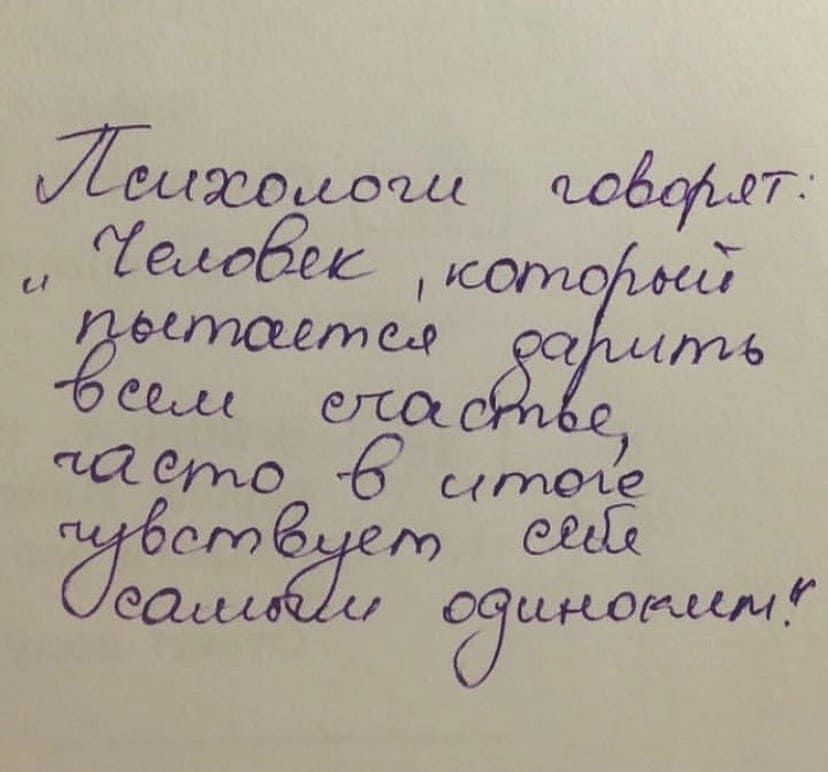 Психологи говорят:
„Человек, который
пытается дарить
всем счастье,
часто в итоге
чувствует себя
самым одиноким!“